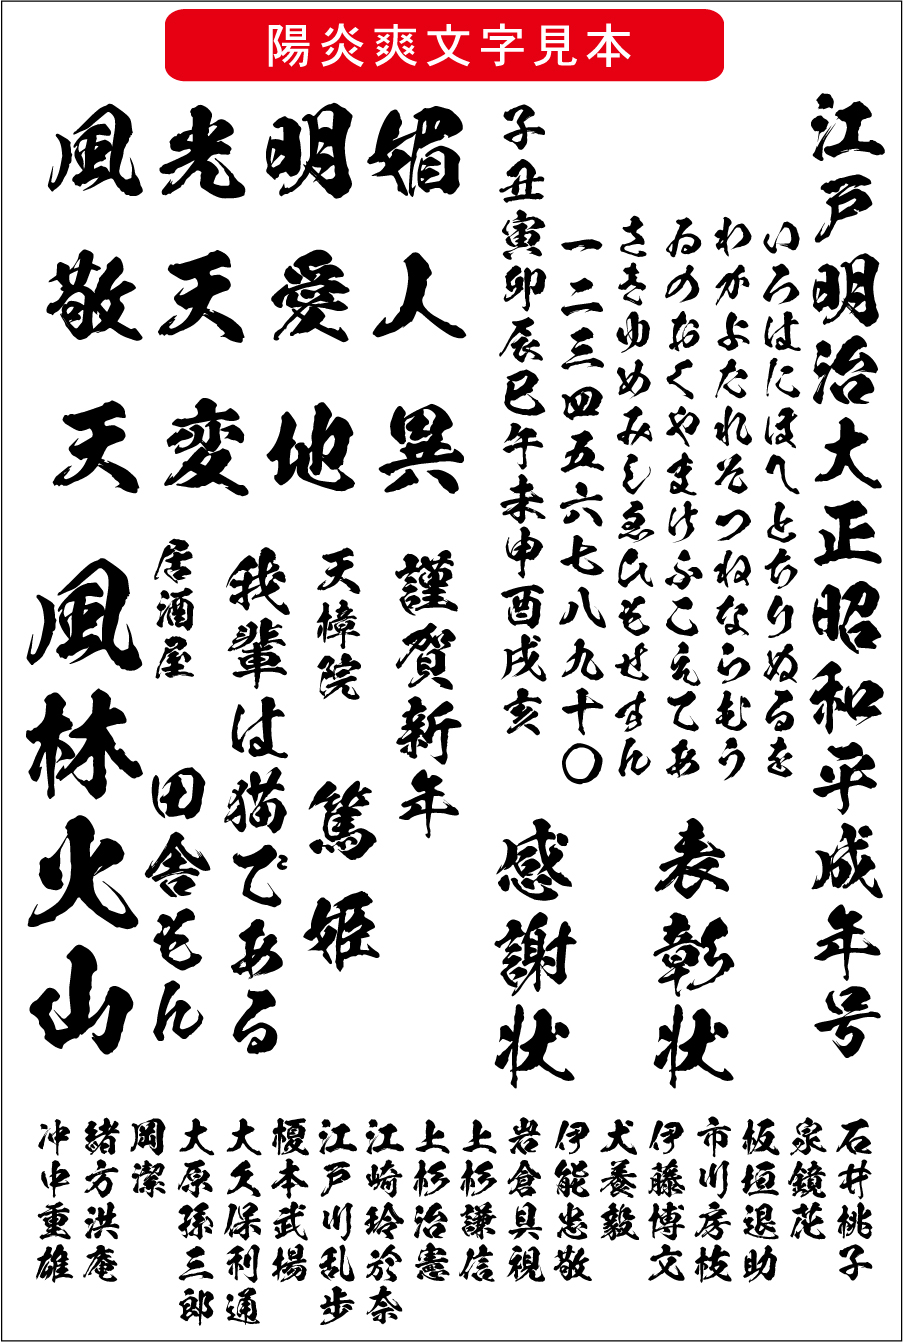 陽炎爽文字見本
江戸明治大正昭和平成年号
いろはにほへとちりぬるを
わかよたれそつねならむう
ゐのおくやまけふこえてあ
さきゆめみしゑひもせすん
一二三四五六七八九十〇
子丑寅卯辰巳午未申酉戌亥
表彰状
感謝状
媚人異
明愛地
光天変
風敬天
謹賀新年
天樟院
篤姫
我輩は猫である
居酒屋
田舎もん
風林火山
石井桃子
泉鏡花
板垣退助
市川房枝
伊藤博文
犬養毅
伊能忠敬
岩倉具視
上杉謙信
上杉治憲
江崎玲於奈
江戸川乱歩
榎本武揚
大久保利通
大原孫三郎
岡潔
緒方洪庵
冲中重雄